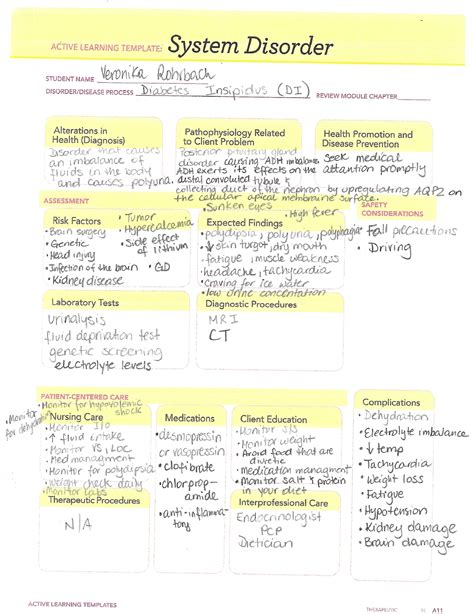 ACTIVE LEARNING TEMPLATE: System Disorder
STUDENT NAME Veronika Rohrbach
DISORDER/DISEASE PROCESS Diabetes Insipidus (DI) REVIEW MODULE CHAPTER
Alterations in
Health (Diagnosis)
Disorder that causes
an imbalance of
fluids in the body
and causes polyuria.
Pathophysiology Related
to Client Problem
Posterior pituitary gland
disorder causing ADH imbalance
ADH exerts its effects on the
distal convoluted tubule &
collecting duct of the nephron by upregulating AQP2 on
the cellular apical membrane surface.
Health Promotion and
Disease Prevention
Seek medical
attention promptly
ASSESSMENT
SAFETY
CONSIDERATIONS
Risk Factors
• Brain surgery
• Genetic
• Head injury
• Infection of the brain
• Kidney disease
• Tumor
• Hypercalcemia
• Side effect
of lithium
Expected Findings
• Sunken eyes
• High fever
• polydipsia, polyuria, polyphagia
• ↓ skin turgor, dry mouth
• fatigue, muscle weakness
• headache, tachycardia
• Craving for ice water
• low urine concentration
• Fall precautions
• Driving
Laboratory Tests
urinalysis
fluid deprivation test
genetic screening
electrolyte levels
Diagnostic Procedures
MRI
CT
PATIENT-CENTERED CARE
• Monitor for hypovolemic
shock
• Monitor
for dehydration
Nursing Care
• Monitor I/O
• ↑ fluid intake
• Monitor VS, LOC
• Med managment
• Monitor for polydipsia
• Weight check daily
• Monitor labs
Medications
• desmopressin
or vasopressin
• clofibrate
• chlorprop-
amide
• anti-inflamma-
tory
Client Education
• Monitor S/S
• Monitor weight
• Avoid food that are
diuretic
• medication managment
• Monitor salt & protein
in your diet
Complications
• Dehydration
• Electrolyte imbalance
• ↓ temp
• Tachycardia
• Weight loss
• Fatigue
• Hypotension
• Kidney damage
• Brain damage
Therapeutic Procedures
N/A
Interprofessional Care
Endocrinologist
PCP
Dietician
ACTIVE LEARNING TEMPLATES
THERAPEUTIC
A11